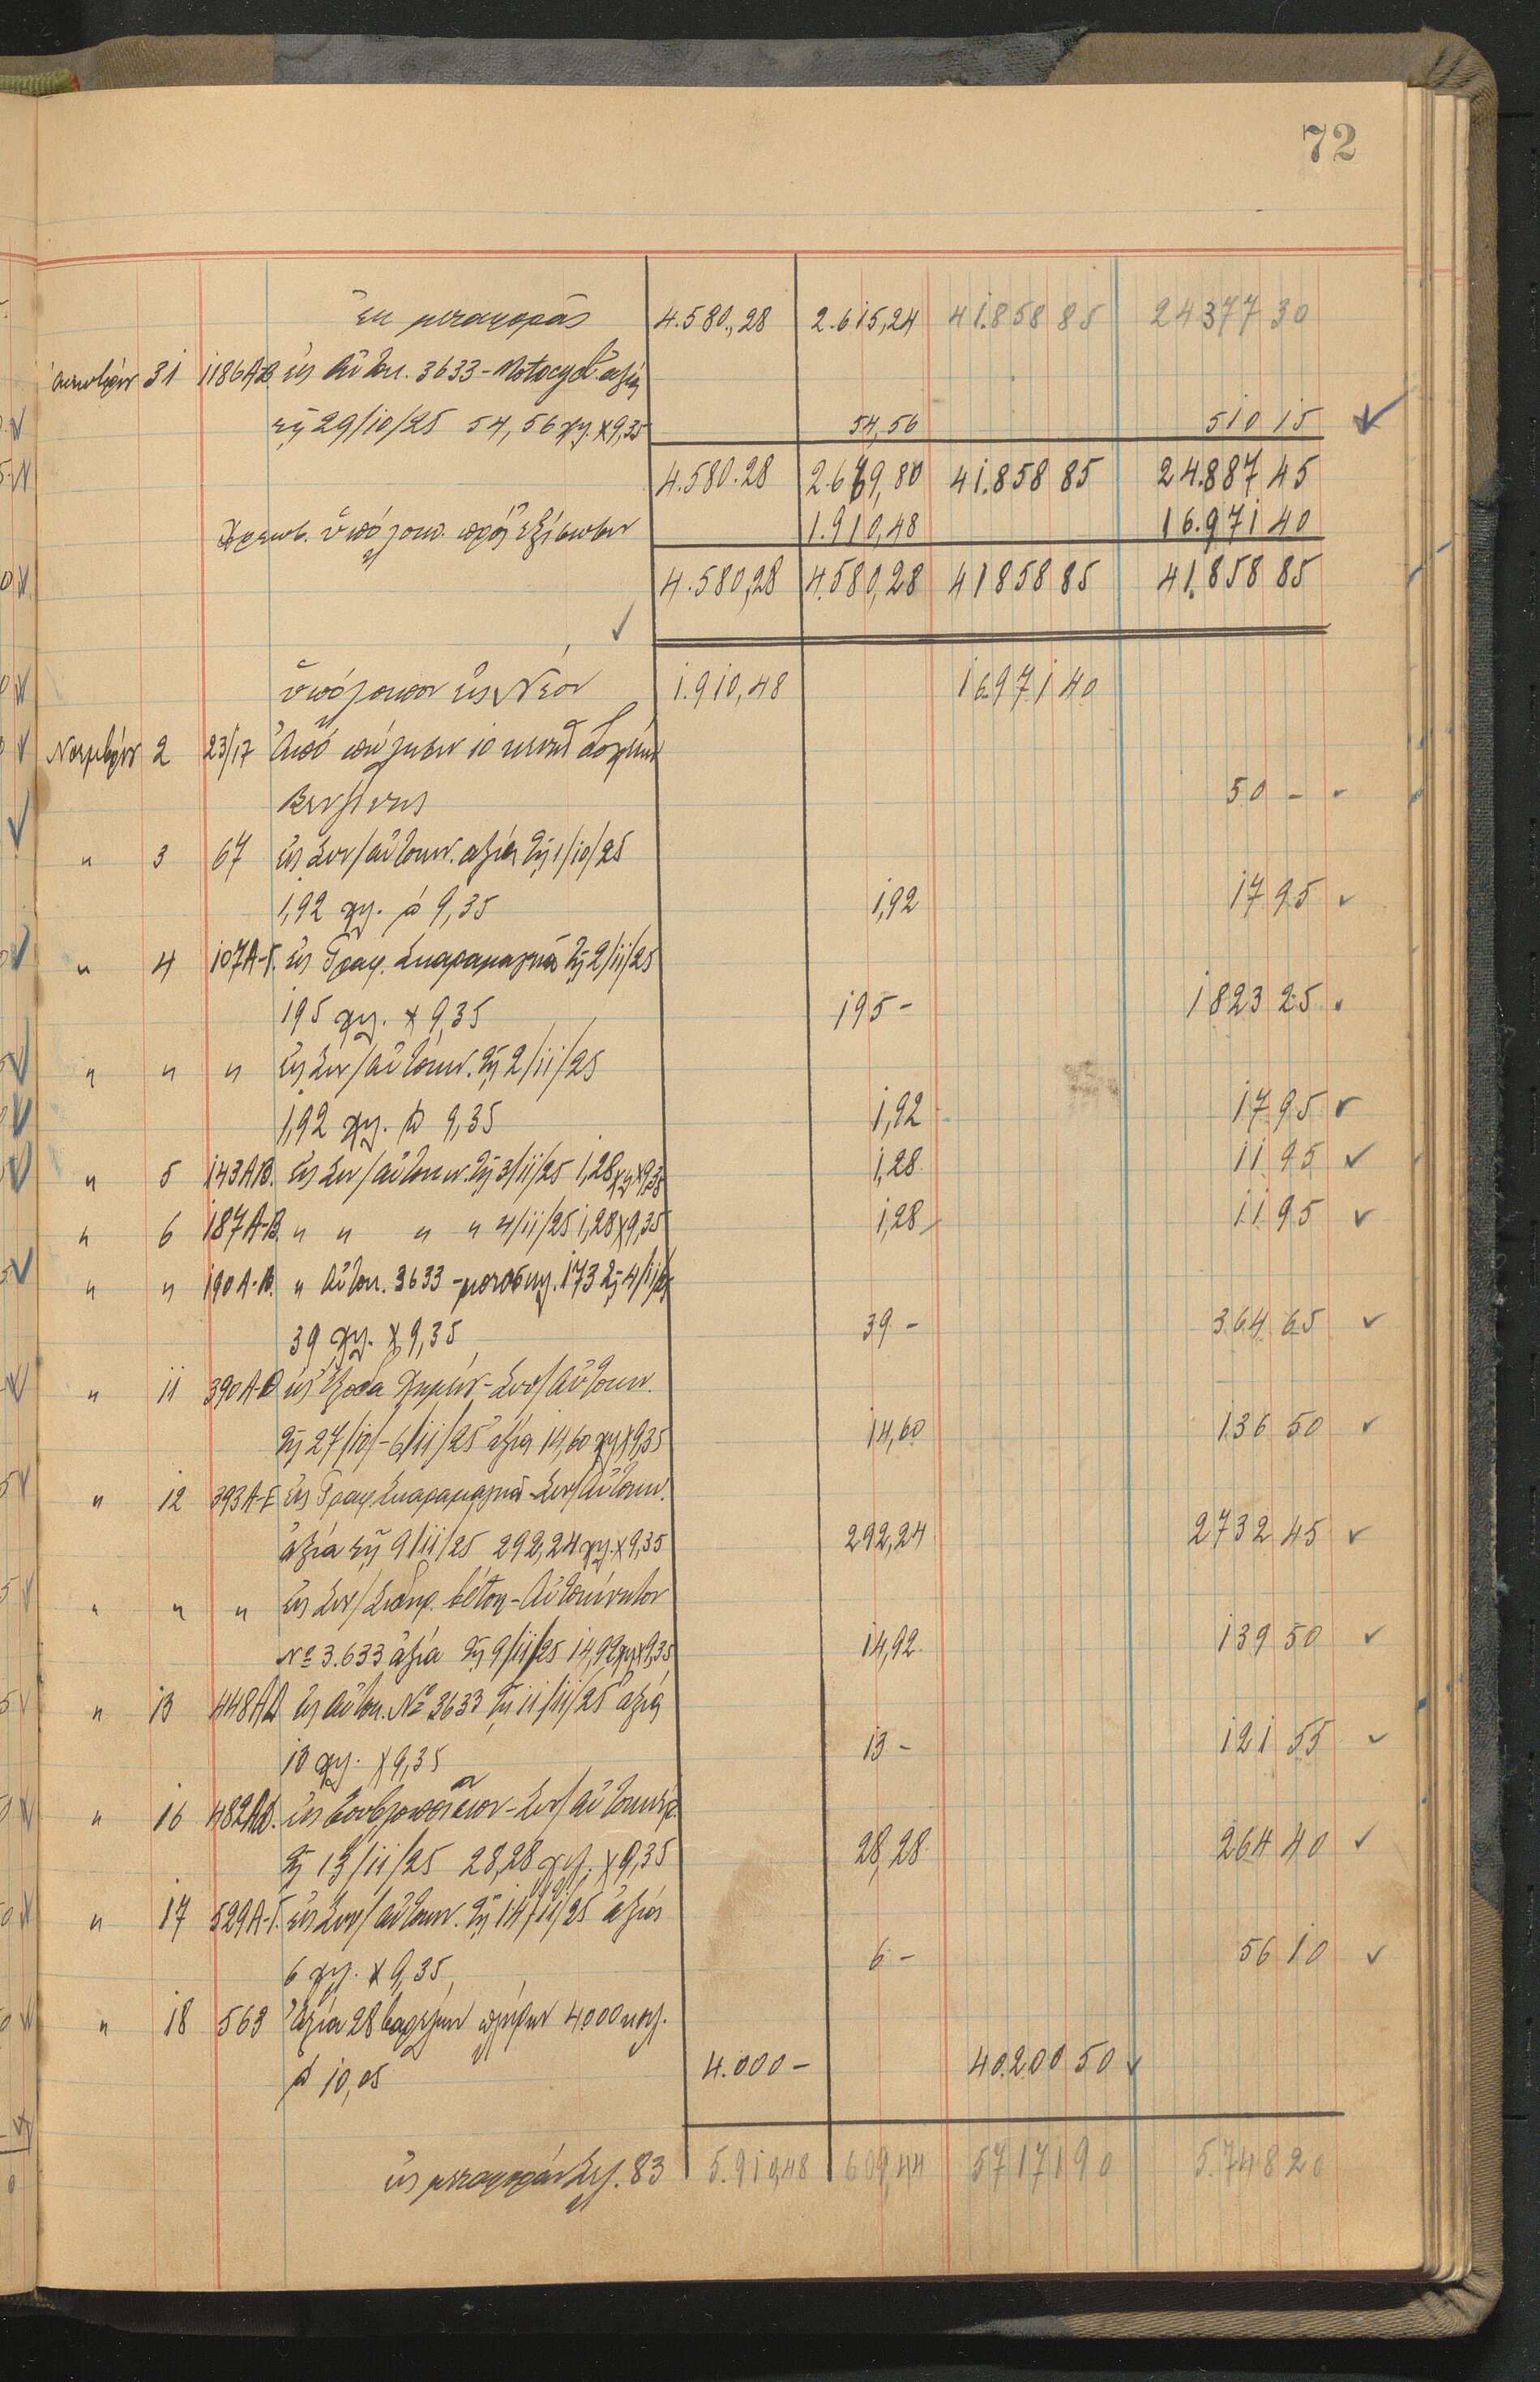 72
Ἐκ μεταφορᾶς 4.580,28 2.615,24 41.858 85 24377 30
Ὀκτωβρίου 31 1186Α-Β εἰς Αὐτοκ. 3633 - Motocycl. ἀξία
τῇ 29/10/25 54,56 χγ. x 9,35 54,56 510 15
4.580.28 2.669,80 41.858 85 24.887 45
Χρεωσ. ὑπόλοιπ. πρὸς ἐξίσωσιν 1.910,48 16.971 40
4.580,28 4.580,28 41858 85 41.858 85
ὑπόλοιπον εἰς Νέον 1.910,48 16971 40
Νοεμβρίου 2 23/17 Ἀπὸ πώλησιν 10 κενῶν δοχείων
Βενζίνης 50 -
" 3 67 εἰς Συν/Αὐτοκιν. ἀξία τῇ 1/10/25
1,92 χγ. à 9,35 1,92 17 95
" 4 107Α-Γ. εἰς Γραφ. Σκαραμαγκᾶ τῇ 2/11/25
195 χγ. x 9,35 195 - 1823 25
" " " εἰς Συν/Αὐτοκιν. τῇ 2/11/25
1,92 χγ. à 9,35 1,92 17 95
" 5 143ΑΒ. εἰς Συν/Αὐτοκιν. τῇ 3/11/25 1,28 χγ x 9,35 1,28 11 95
" 6 187Α-Β " " " " 4/11/25 1,28 x 9,35 1,28 11 95
" " 190Α-Β. " Αὐτοκ. 3633 - μοτοσυκ. 173 τῇ 4/11/25
39 χγ. x 9,35 39 - 364 65
" 11 390Α-Θ εἰς Ἔξοδα - Συν/Αὐτοκιν.
τῇ 27/10/-6/11/25 ἀξία 14,60 χγ x 9,35 14,60 136 50
" 12 393Α-Ε εἰς Γραφ. Σκαραμαγκᾶ - Συν/Αὐτοκιν.
ἀξία τῇ 9/11/25 292,24 χγ. x 9,35 292,24 2732 45
" " " εἰς Συν/Σιδηρ. béton - Αὐτοκίνητον
Nº 3.633 ἀξία τῇ 9/11/25 14,92 χγ x 9,35 14,92 139 50
" 13 448ΑΔ εἰς Αὐτοκ. Nº 3633 τῇ 11/11/25 ἀξία
13 χγ. x 9,35 13 - 121 55
" 16 482ΑΔ. εἰς - Συν/Αὐτοκινήτ.
τῇ 13/11/25 28,28 χγ. x 9,35 28,28 264 40
" 17 529Α-Γ. εἰς Συν/Αὐτοκιν. τῇ 14/11/25 ἀξία
6 χγ. x 9,35 6 - 56 10
" 18 563 Ἀξία 28 βαρελίων πλήρων 4000 χιλ.
à 10,05 4.000 - 40.200 50
εἰς μεταφορὰν Σελ. 83 5.910,48 609,44 57171 90 5.748 20